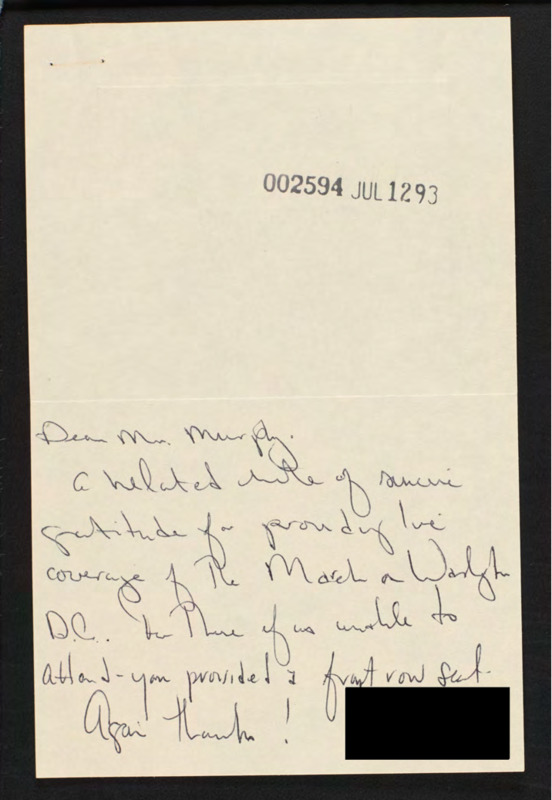 002594 JUL 12 93
Dear Mr. Murphy.
A belated note of sincere
gratitude for providing live
coverage of the March on Washington
D.C.. For those of us unable to
attend - you provided a front row seat.
Again thanks!